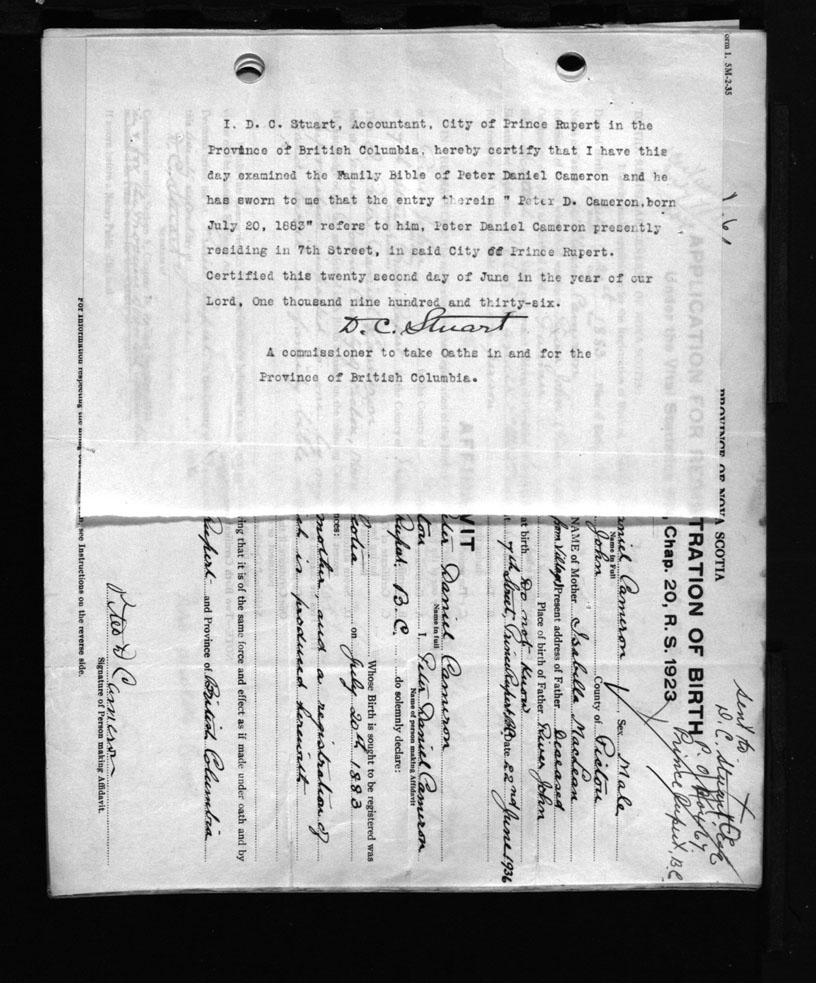 I. D. C. Stuart, Accountant, City of Prince Rupert in the
Province of British Columbia, hereby certify that I have this
day examined the Family Bible of Peter Daniel Cameron and he
has sworn to me that the entry therein " Peter D. Cameron,born
July 20, 1883" refers to him, Peter Daniel Cameron presently
residing in 7th Street, in said City of Prince Rupert.
Certified this twenty second day of June in the year of our
Lord, One thousand nine hundred and thirty-six.
D. C. Stuart
A commissioner to take Oaths in and for the
Province of British Columbia.
orm 1. 5M-2-35
PROVINCE OF NOVA SCOTIA
APPLICATION FOR
TRATION OF BIRTH
Chap. 20, R. S. 1923
sent to
D. C. Stuart Esq
Prince Rupert, B.C.
niel Cameron Sex Male
Name in Full
John County of Pictou
NAME of Mother Isabella MacLean
from Village) Present address of Father deceased
Place of birth of Father River John
at birth Do not know
7th Street, Prince Rupert BC Date 22nd June 1936
VIT
Daniel Cameron
Name in full
I, Peter Daniel Cameron
Name of person making Affidavit
Rupert, B.C. do solemnly declare:
Whose Birth is sought to be registered was
Scotia on July 20th 1883
mother, and a registration of
is produced herewith
ing that it is of the same force and effect as if made under oath and by
Rupert and Province of British Columbia
Peter D Cameron
Signature of Person making Affidavit.
For information respecting the
see Instructions on the reverse side.